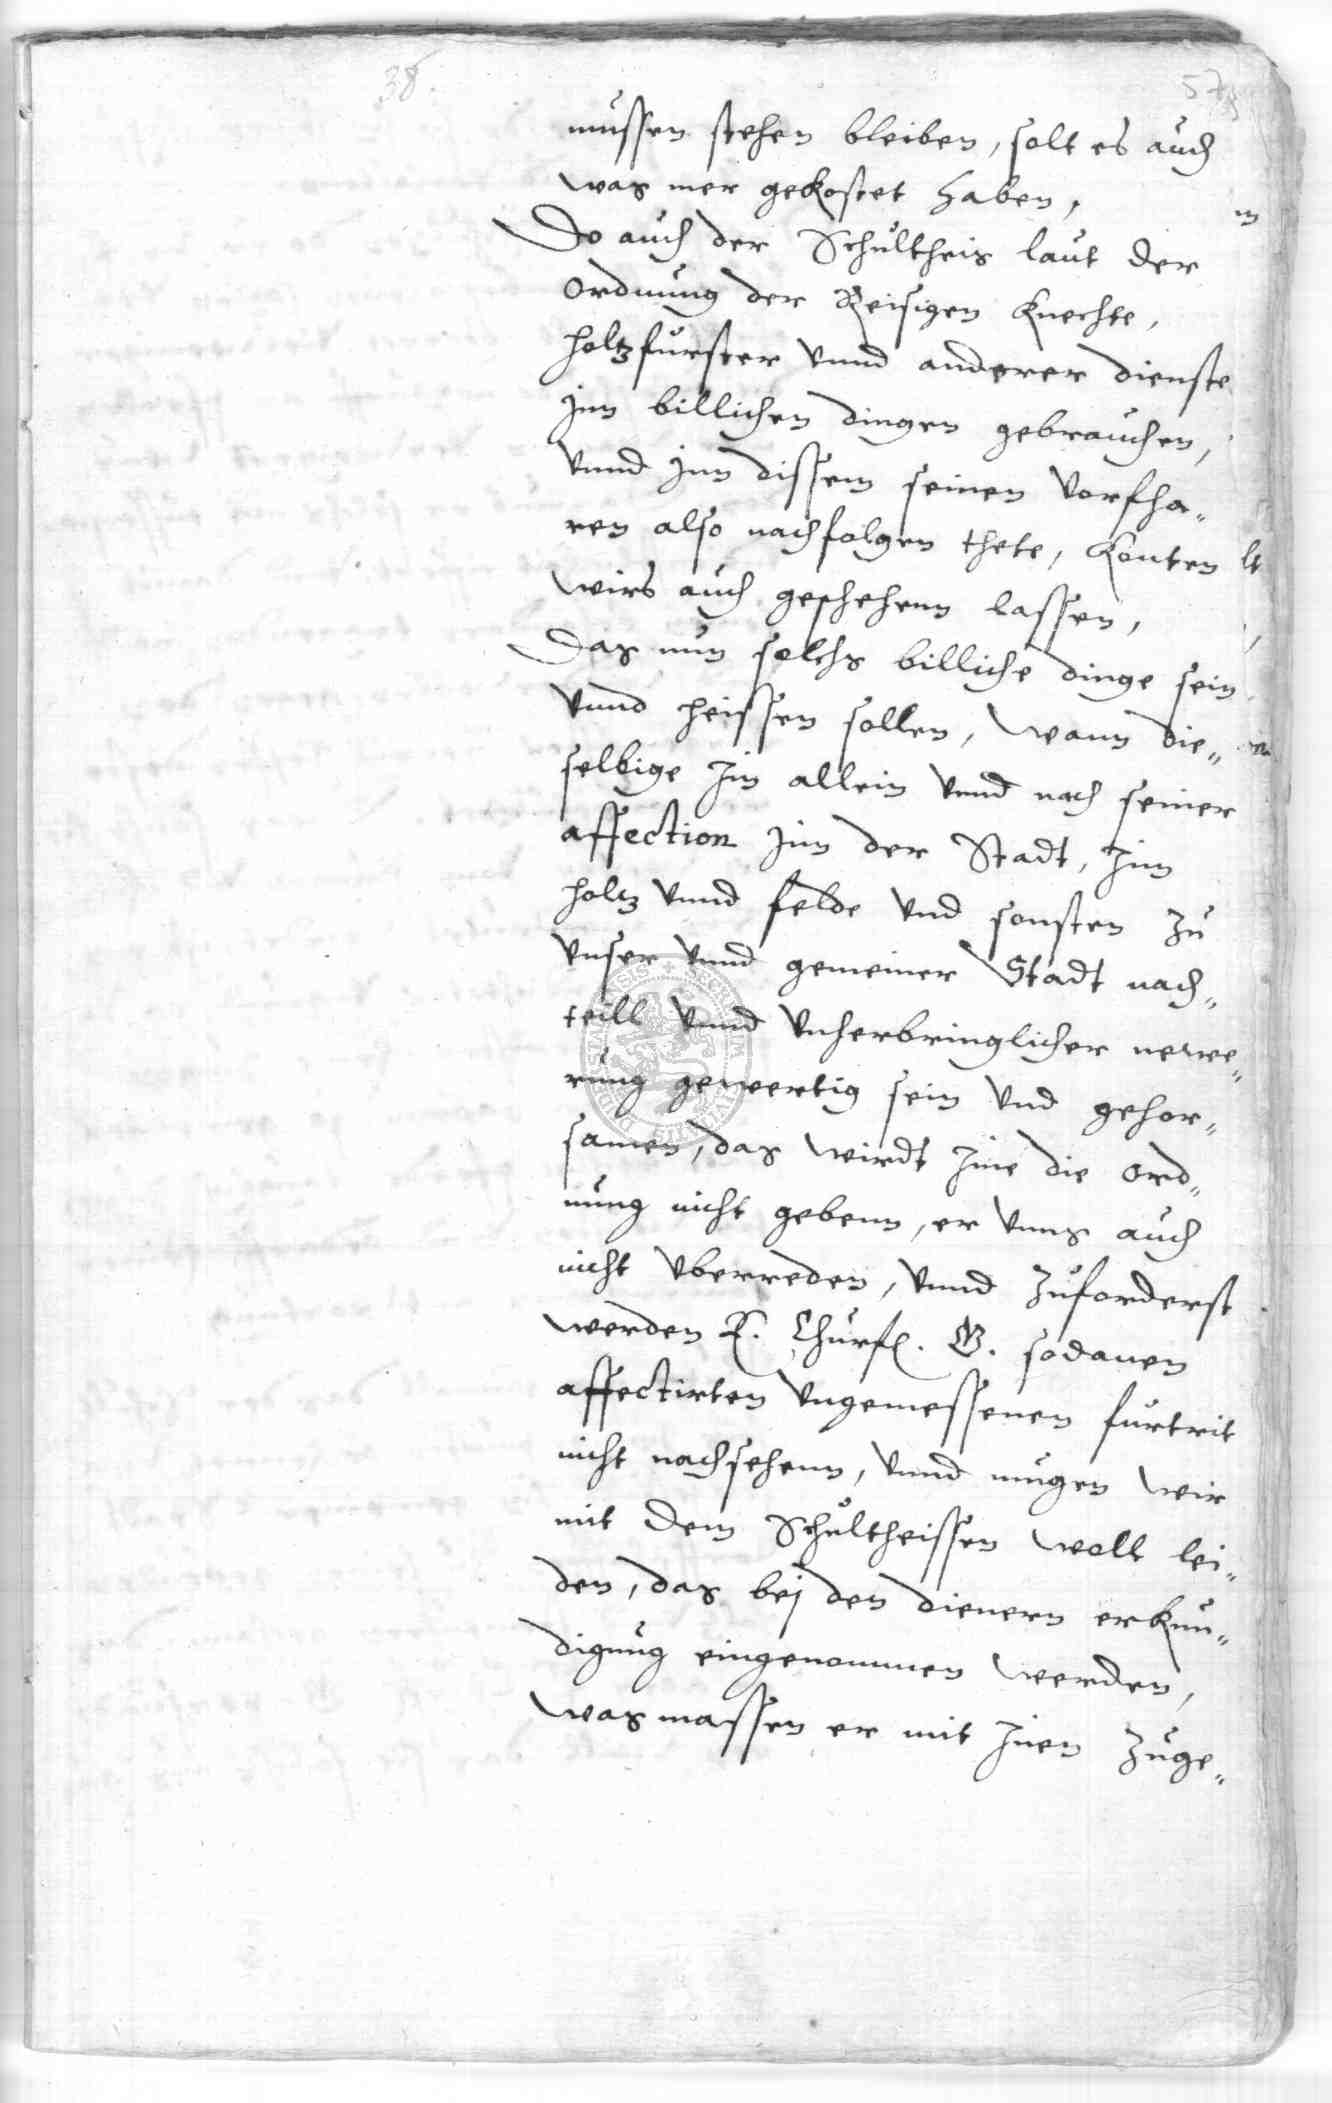 38.
57
mussen stehen bleiben, solt es auch
was mer gekostet haben,
Do auch der Schultheis laut der
Ordnung der Reisigen Knechte,
holtzfurster vnnd anderer dienste
Jnn billichen dingen gebrauchen,
vnnd Jnn dissem seinen vorfha„
ren also nachfolgen thete, Konten
wirs auch geschehenn lassen,
Das nun solchs billiche dinge sein
vnnd heissen sollen, wann die„
selbige Jm allein vnnd nach seiner
affection Jnn der Stadt, Jnn
holtz vnnd felde vnd sonsten zu
vnser vnnd gemeiner Stadt nach„
teill vnnd vnherbringlicher newe„
rung gewertig sein vnd gehor„
samen, das wirdt Jme die Ord„
nung nicht gebenn, er vnns auch
nicht vberreden, vnnd zuforderst
werden E. Churf. G. sodanen
affectirten vngemessenen furtrit
nicht nachsehenn, vnnd mugen wir
mit dem Schultheissen woll lei„
den, das bej den dienern erkun„
digung eingenommen werden,
was massen er mit Jnen zuge„